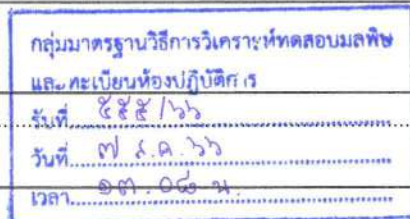 กลุ่มมาตรฐานวิธีการวิเคราะห์ทดสอบมลพิษ
และทะเบียนห้องปฏิบัติการ
รับที่ ๕๕๕/๖๖
วันที่ ๗ ส.ค. ๖๖
เวลา ๑๓.๐๘ น.